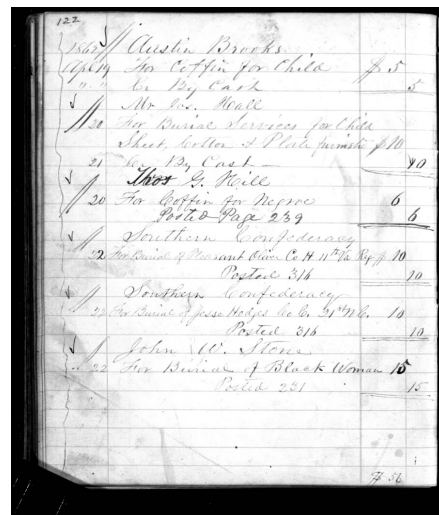 122
1862 Austin Brooks
Apl 19 For Coffin for Child $ 5
" " Cr By Cash 5
Mr Jas. Hall
20 For Burial Services for Child
Sheet, Cotton & Plate furnishd $ 10
21 Cr By Cash 10
Thos G. Hill
20 For Coffin for Negroe 6
Posted Page 239 6
Southern Confederacy
22 For Burial of Pleasant Oliver Co H. 11th Va Reg $ 10
Posted 316 10
Southern Confederacy
22 For Burial of Jesse Hodges Co C. 21st N.C. 10
Posted 316 10
John W. Stone
22 For Burial of Black Woman 15
Posted 231 15
$ 56